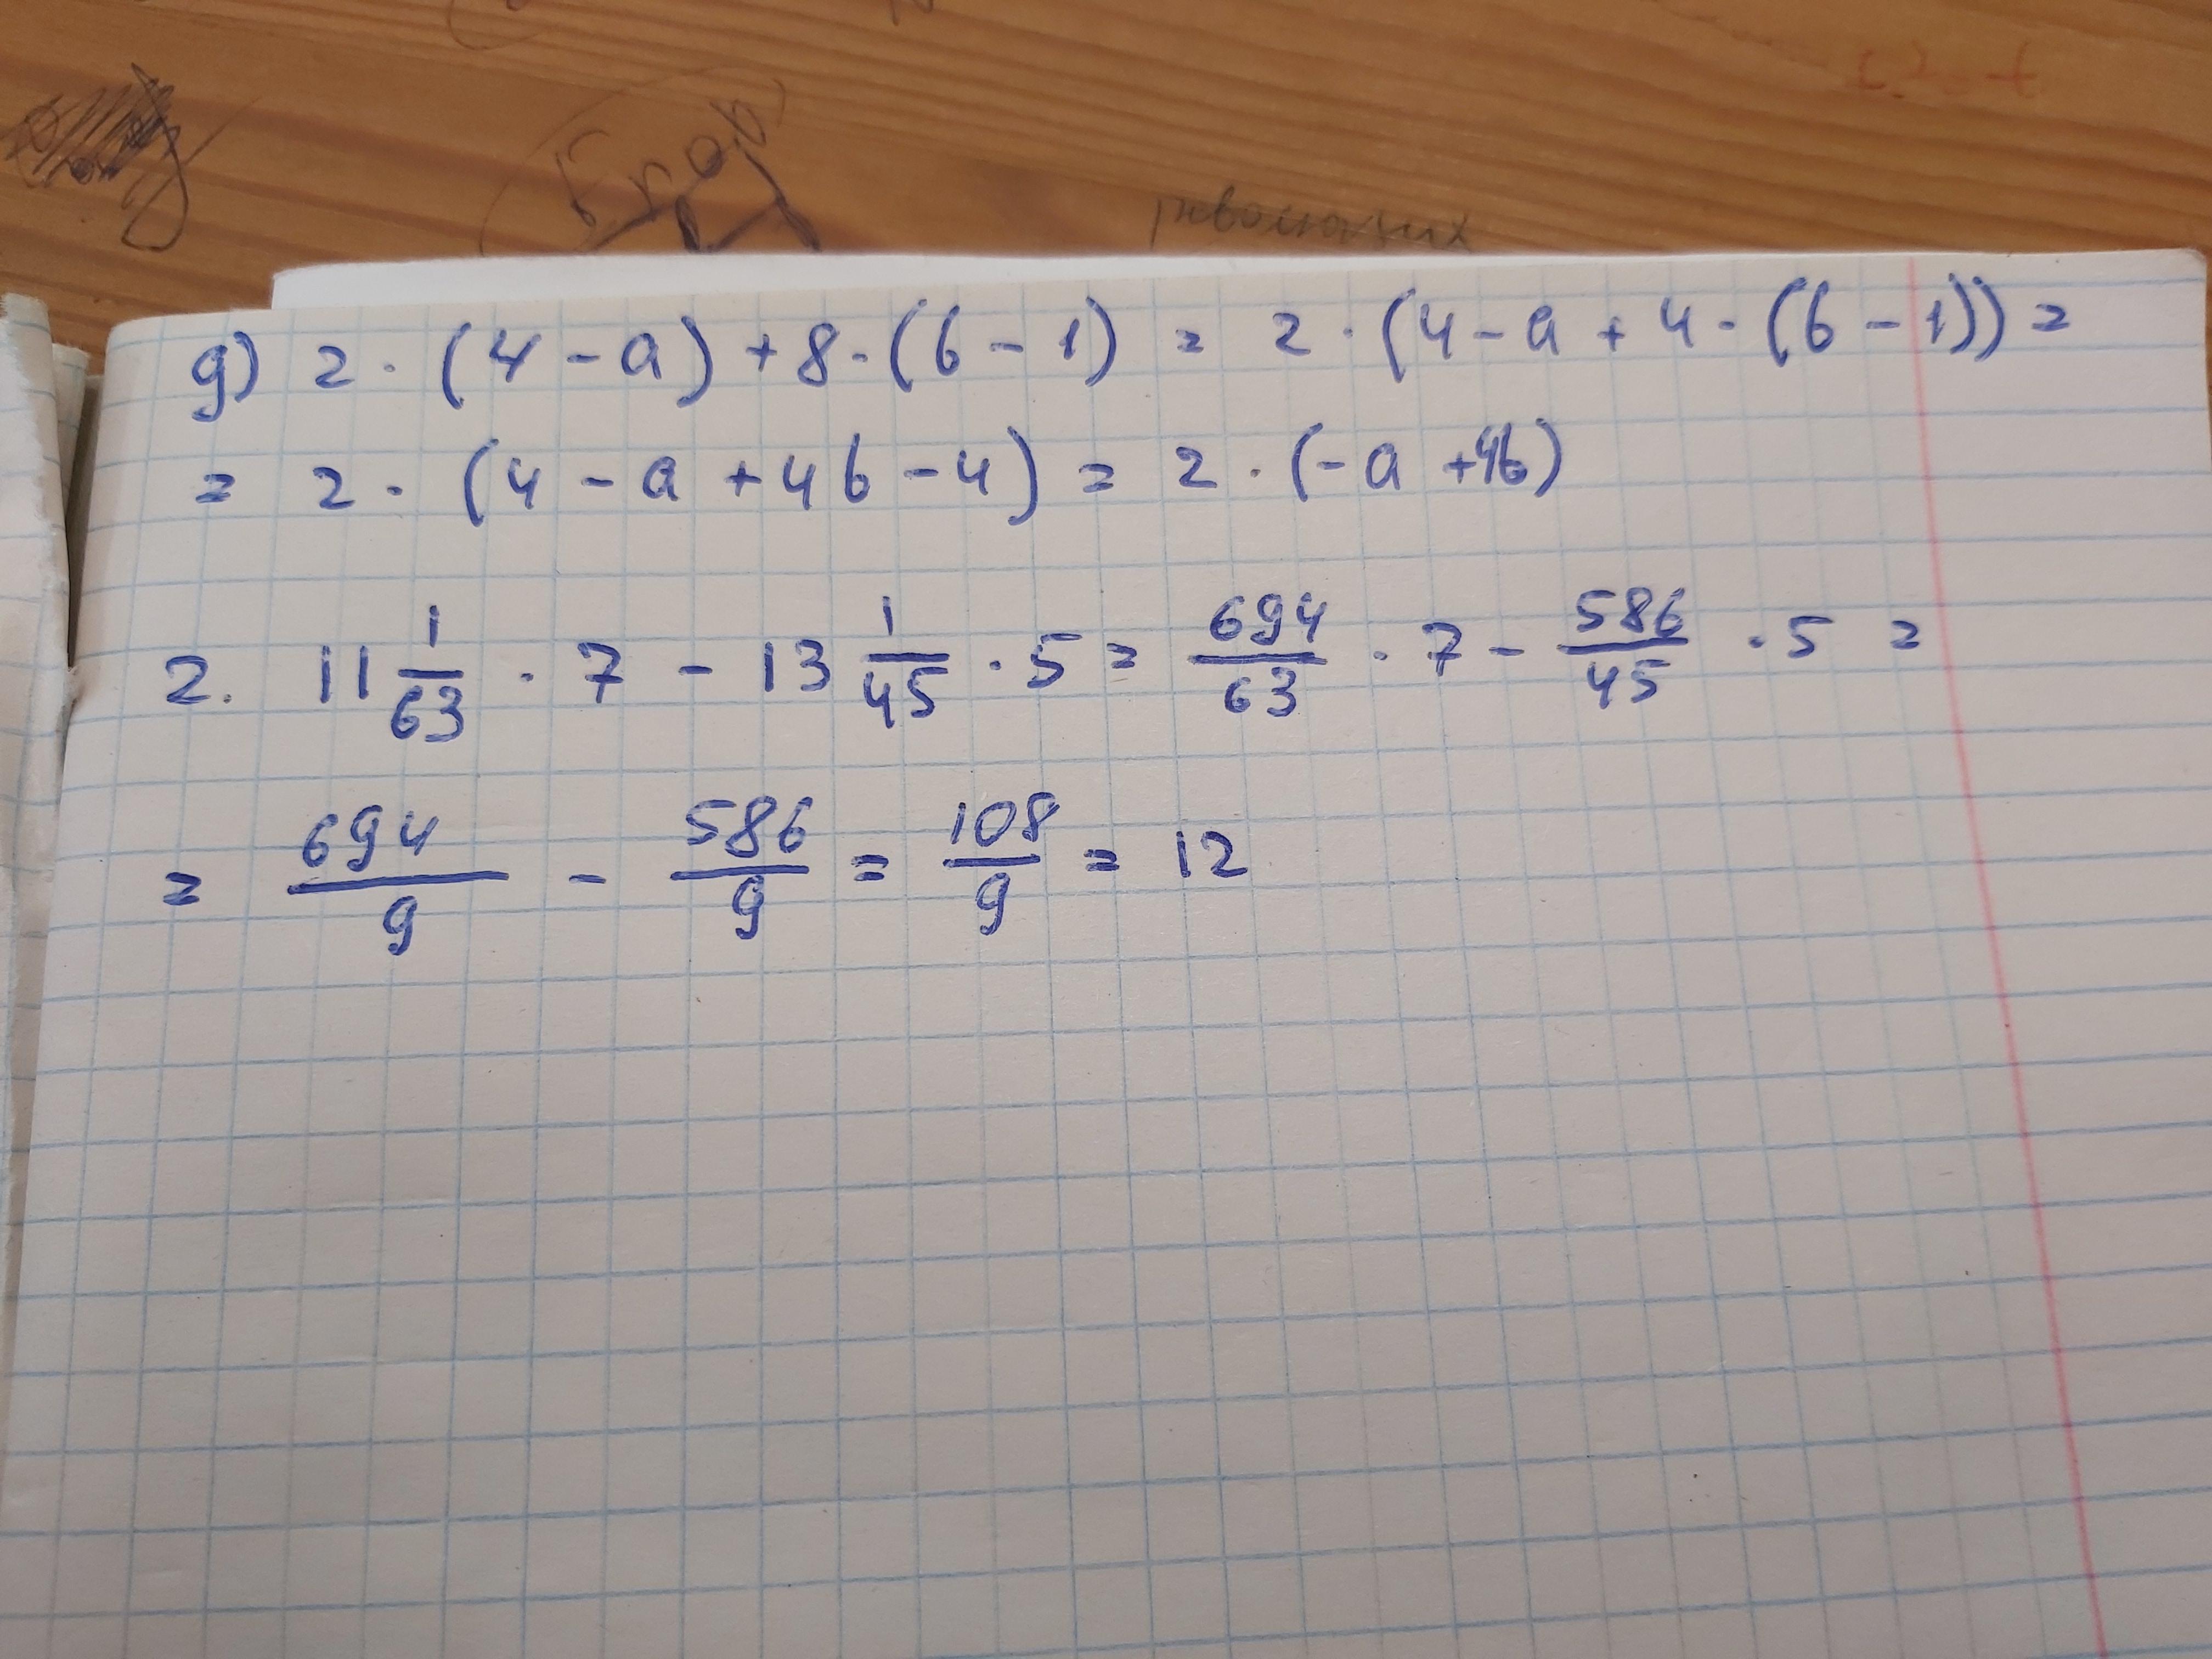 Егор
g) 2 · (4 - a) + 8 · (b - 1) = 2 · (4 - a + 4 · (b - 1)) =
= 2 · (4 - a + 4b - 4) = 2 · (-a + 4b)
2. 11 1/63 · 7 - 13 1/45 · 5 = 694/63 · 7 - 586/45 · 5 =
= 694/9 - 586/9 = 108/9 = 12